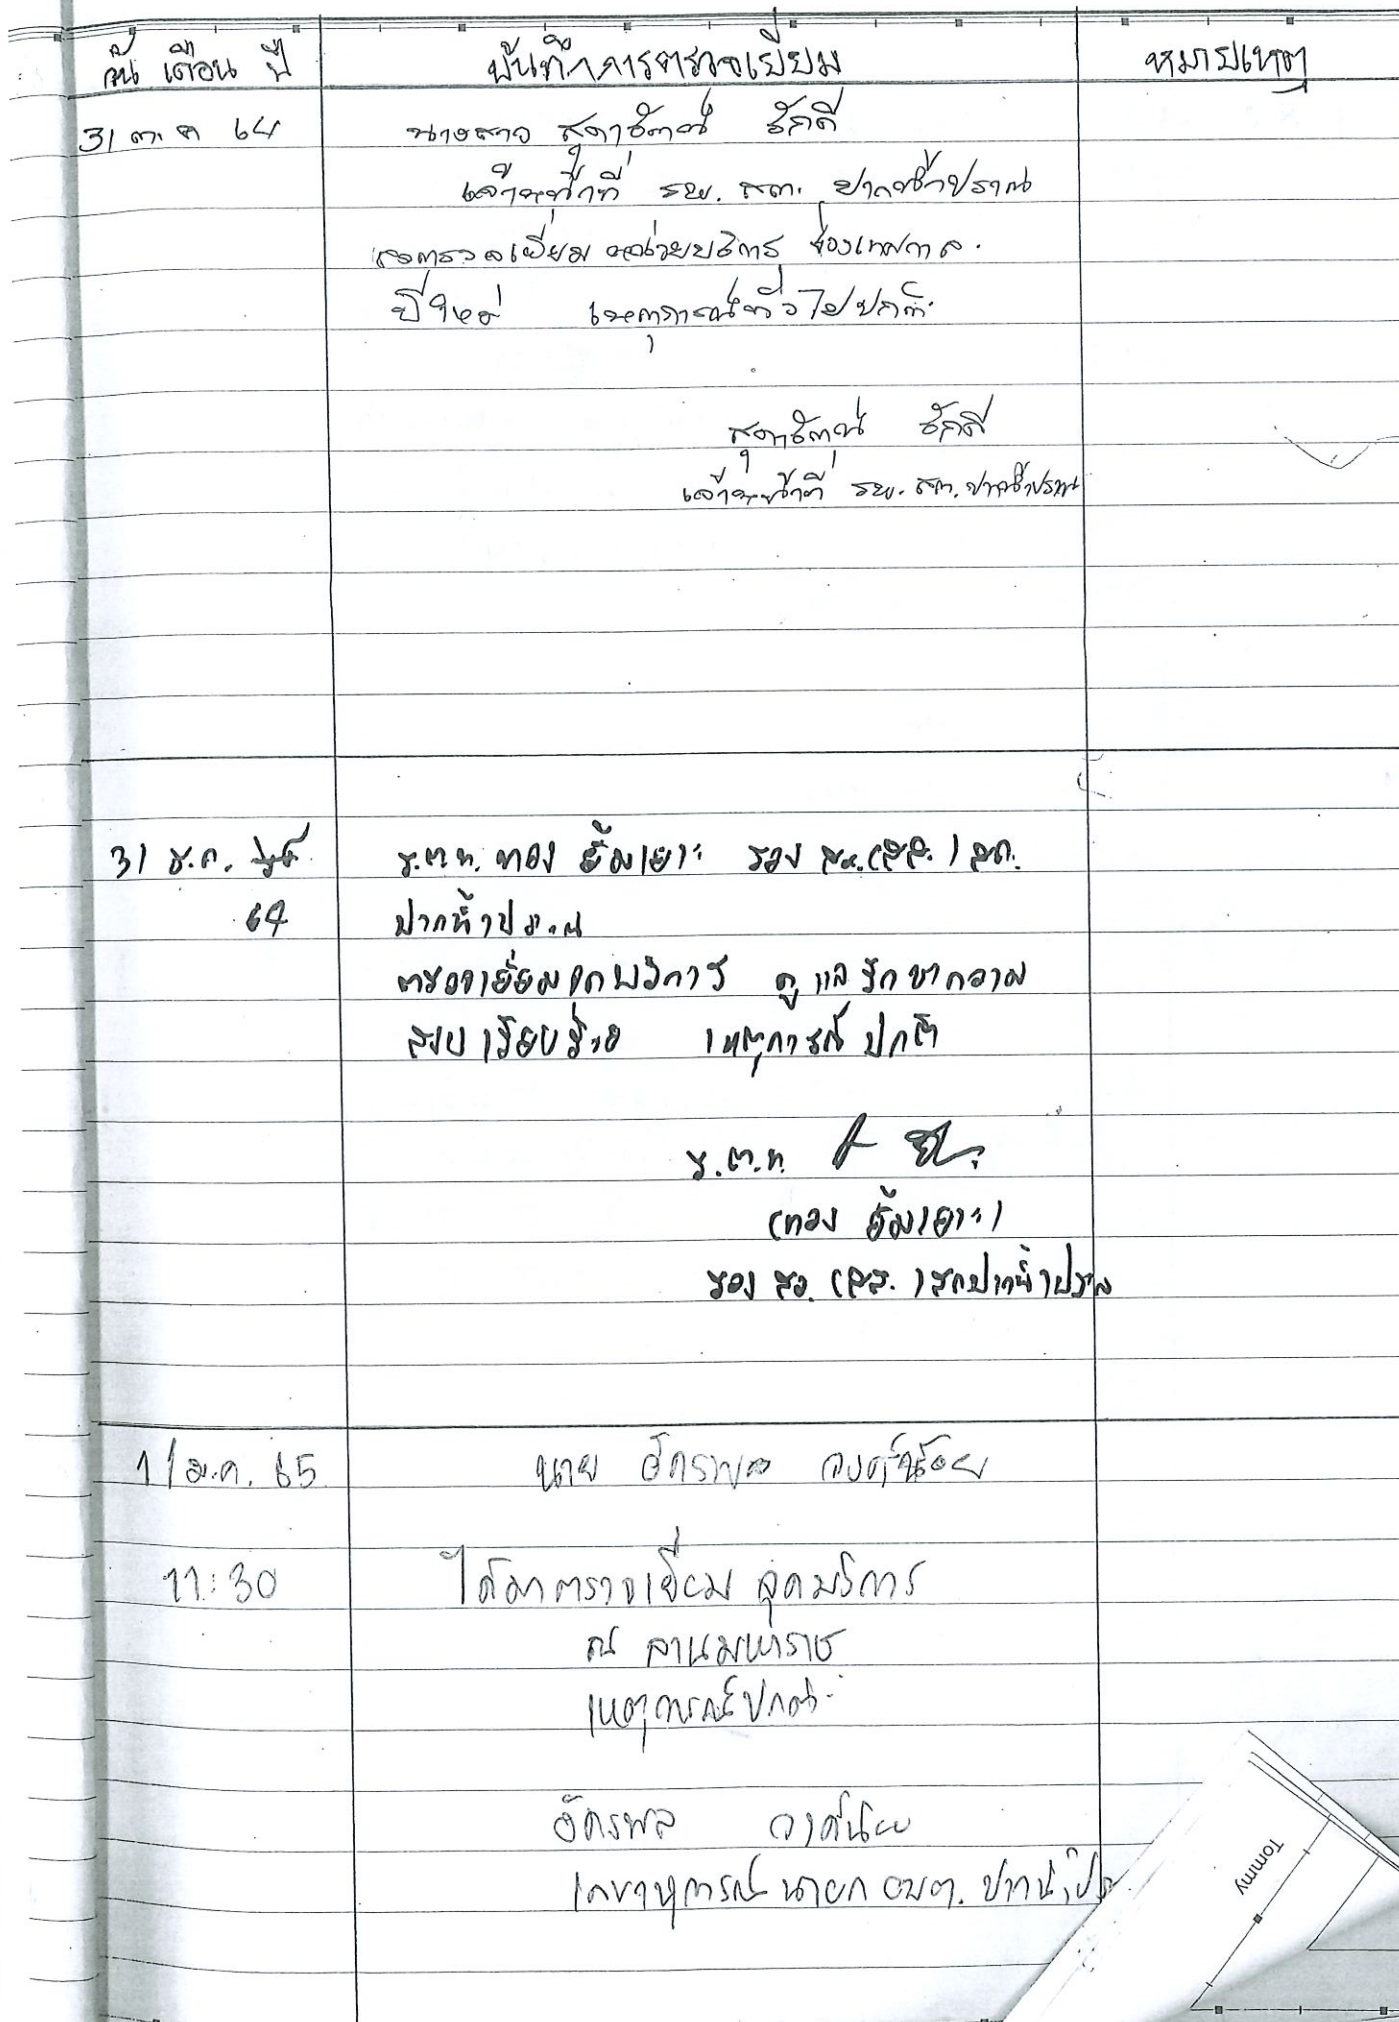 วัน เดือน ปี บันทึกการตรวจเยี่ยม หมายเหตุ
31 ต.ค 64 นางสาว สุดารัตน์ รักดี
เจ้าหน้าที่ รพ.สต. ปากน้ำปราณ
ออกตรวจเยี่ยม หน่วยบริการ ช่วงเทศกาล
ปีใหม่ เหตุการณ์ทั่วไปปกติ
สุดารัตน์ รักดี
เจ้าหน้าที่ รพ.สต.ปากน้ำปราณ
31 ธ.ค. ร.ต.ท. ทอง ยิ้มเยาะ รอง สว.(สส.) สภ.
64 ปากน้ำปราณ
ตรวจเยี่ยมจุดบริการ ดูแลรักษาความ
สงบเรียบร้อย เหตุการณ์ปกติ
ร.ต.ท.
(ทอง ยิ้มเยาะ)
รอง สว. (สส.) สภปากน้ำปราณ
1/ม.ค. 65 นาย อัครพล วงศ์น้อย
11:30 ได้มาตรวจเยี่ยม จุดบริการ
ณ ลานมหาราช
เหตุการณ์ปกติ
อัครพล วงศ์น้อย
เลขานุการ นายก อบต. ปากน้ำ
Tommy